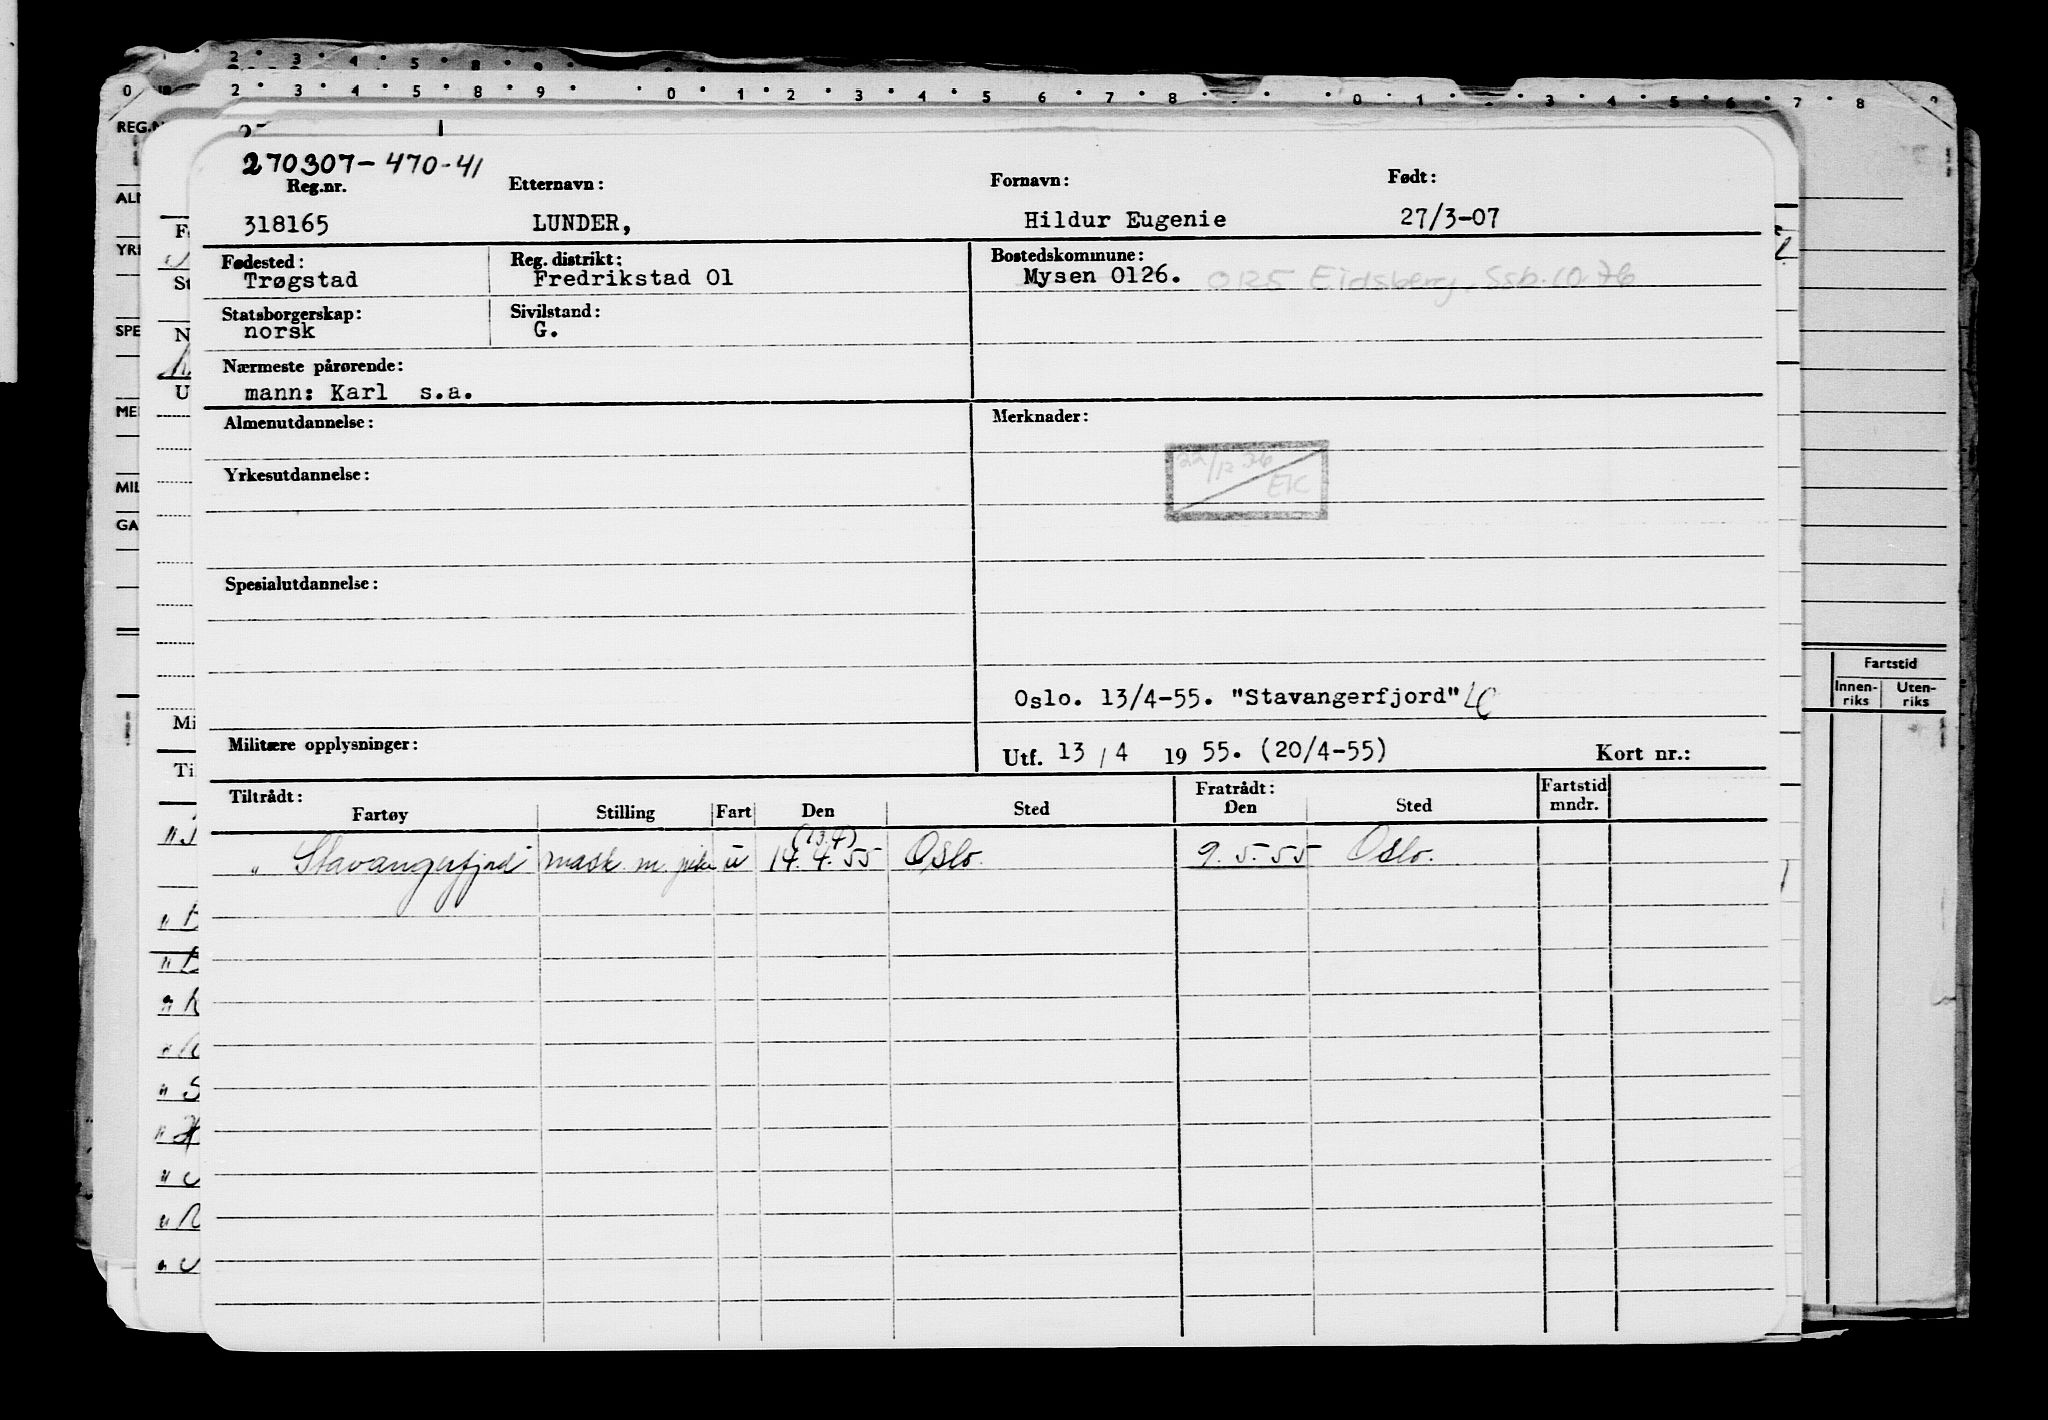 0 2 3 4 5 8 9 0 1 2 3 4 5 6 7 8 0 1 2 3 4 5 6 7 8 9
REG.N
270307-470-41
Reg.nr. Etternavn: Fornavn: Født:
318165 LUNDER, Hildur Eugenie 27/3-07
Fødested: Reg. distrikt: Bostedskommune:
Trøgstad Fredrikstad 01 Mysen 0126. 0125 Eidsberg. Ssb. 10.76
Statsborgerskap: Sivilstand:
norsk G.
Nærmeste pårørende:
mann: Karl s.a.
Almenutdannelse: Merknader:
22/12 76
EK
Yrkesutdannelse:
Spesialutdannelse:
Oslo. 13/4-55. "Stavangerfjord"
Militære opplysninger: Utf. 13 / 4 1955. (20/4-55) Kort nr.:
Tiltrådt: Fratrådt: Fartstid
Fartøy Stilling Fart Den Sted Den Sted mndr.
(13.4)
"Stavangerfjord" mask. m. pike u 14.4.55 Oslo. 9.5.55 Oslo.
ALM
YRK
SPE
MEI
MIL
GA
Mi
Ti
Fartstid
Innen-
riks
Uten-
riks